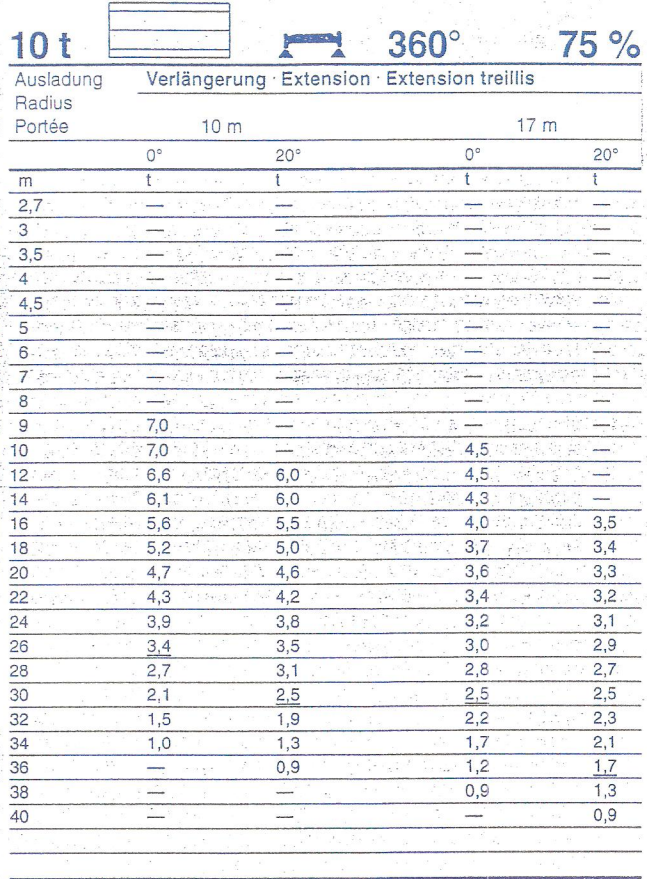 10 t 360° 75 %
Ausladung Verlängerung · Extension · Extension treillis
Radius
Portée 10 m 17 m
0° 20° 0° 20°
m t t t t
2,7 — — — —
3 — — — —
3,5 — — — —
4 — — — —
4,5 — — — —
5 — — — —
6 — — — —
7 — — — —
8 — — — —
9 7,0 — — —
10 7,0 — 4,5 —
12 6,6 6,0 4,5 —
14 6,1 6,0 4,3 —
16 5,6 5,5 4,0 3,5
18 5,2 5,0 3,7 3,4
20 4,7 4,6 3,6 3,3
22 4,3 4,2 3,4 3,2
24 3,9 3,8 3,2 3,1
26 3,4 3,5 3,0 2,9
28 2,7 3,1 2,8 2,7
30 2,1 2,5 2,5 2,5
32 1,5 1,9 2,2 2,3
34 1,0 1,3 1,7 2,1
36 — 0,9 1,2 1,7
38 — — 0,9 1,3
40 — — — 0,9